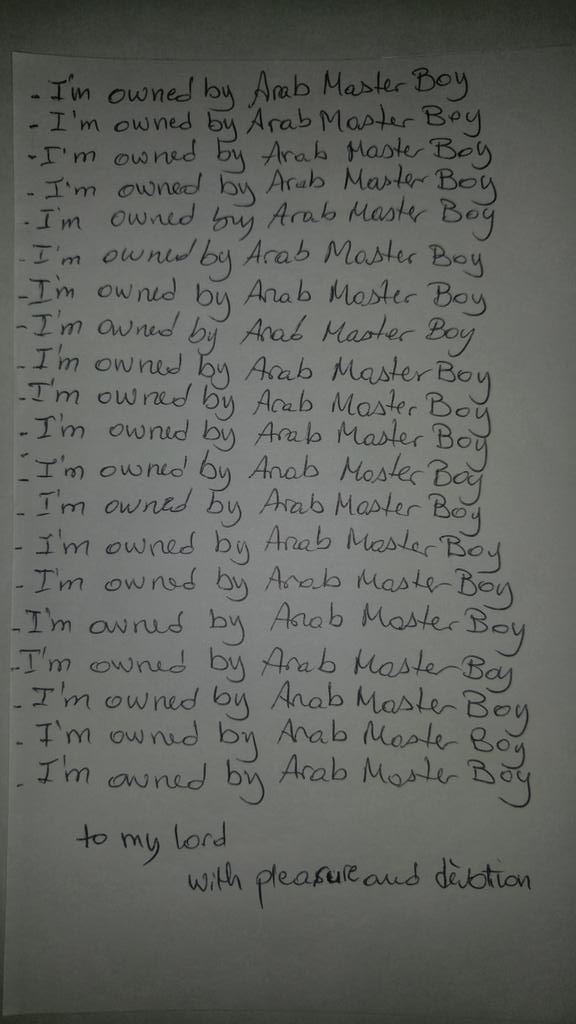 - I'm owned by Arab Master Boy
- I'm owned by Arab Master Boy
- I'm owned by Arab Master Boy
- I'm owned by Arab Master Boy
- I'm owned by Arab Master Boy
- I'm owned by Arab Master Boy
- I'm owned by Arab Master Boy
- I'm owned by Arab Master Boy
- I'm owned by Arab Master Boy
- I'm owned by Arab Master Boy
- I'm owned by Arab Master Boy
- I'm owned by Arab Master Boy
- I'm owned by Arab Master Boy
- I'm owned by Arab Master Boy
- I'm owned by Arab Master Boy
- I'm owned by Arab Master Boy
- I'm owned by Arab Master Boy
- I'm owned by Arab Master Boy
- I'm owned by Arab Master Boy
- I'm owned by Arab Master Boy
to my lord
with pleasure and dèvotion